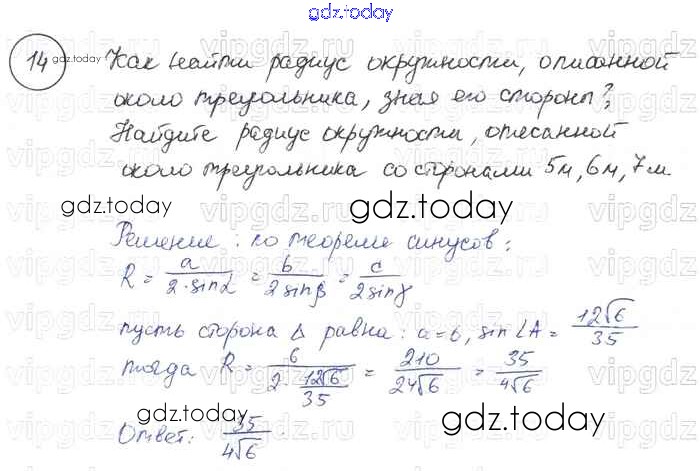 gdz.today
14 Как найти радиус окружности, описанной
около треугольника, зная его стороны?
Найдите радиус окружности, описанной
около треугольника со сторонами 5м, 6м, 7м.
gdz.today gdz.today
Решение: по теореме синусов:
R = a/(2·sinα) = b/(2sinβ) = c/(2sinγ)
пусть сторона Δ равна: a=6, sin∠A = 12√6/35
тогда R = 6/(2·12√6/35) = 210/(24√6) = 35/(4√6)
Ответ: 35/(4√6).
gdz.today gdz.today